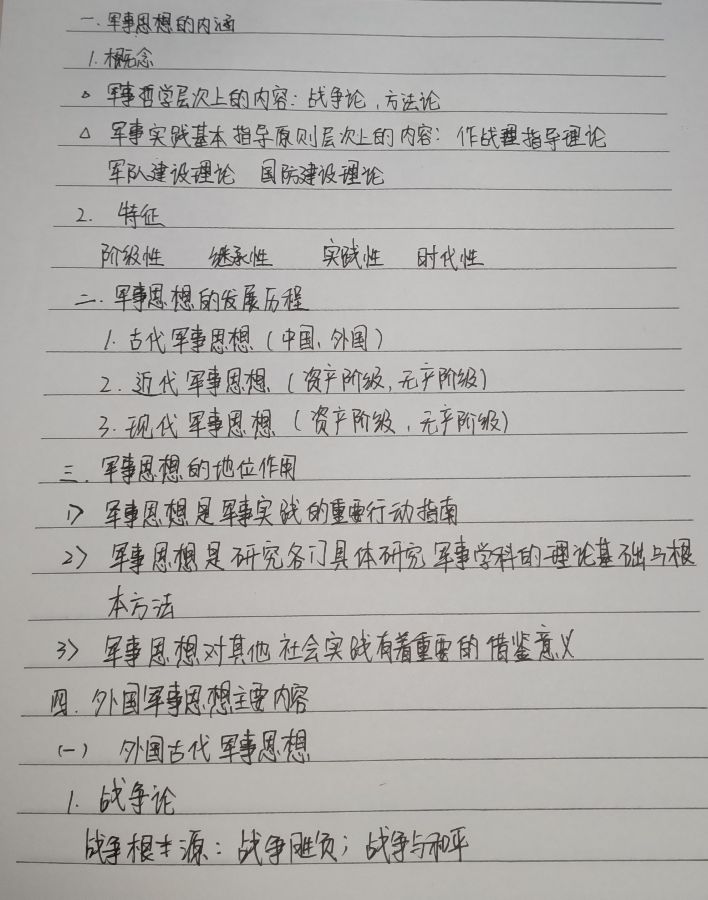 一.军事思想的内涵
1.概念
△ 军事哲学层次上的内容：战争论，方法论
△ 军事实践基本指导原则层次上的内容：作战指导理论
军队建设理论 国防建设理论
2. 特征
阶级性 继承性 实践性 时代性
二.军事思想的发展历程
1.古代军事思想（中国、外国）
2.近代军事思想（资产阶级,无产阶级）
3.现代军事思想（资产阶级,无产阶级）
三.军事思想的地位作用
1> 军事思想是军事实践的重要行动指南
2> 军事思想是研究各门具体研究军事学科的理论基础与根
本方法
3> 军事思想对其他社会实践有着重要的借鉴意义
四.外国军事思想主要内容
(一) 外国古代军事思想
1.战争论
战争根源：战争胜负；战争与和平